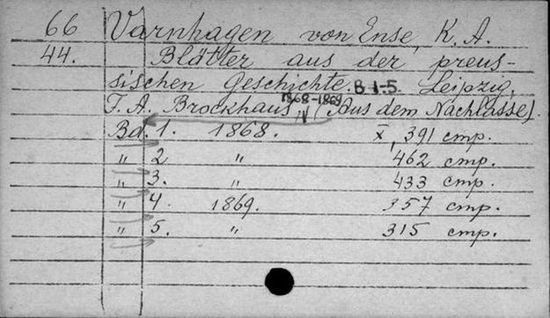 66 Varnhagen von Ense, K. A.
44. Blätter aus der preus-
sischen Geschichte. B. 1-5. Leipzig,
1868-1869
F. A. Brockhaus, (Aus dem Nachlasse).
Bd. 1. 1868. X, 391 стр.
" 2 " 462 стр.
" 3. " 433 стр.
" 4. 1869. 357 стр.
" 5. " 315 стр.